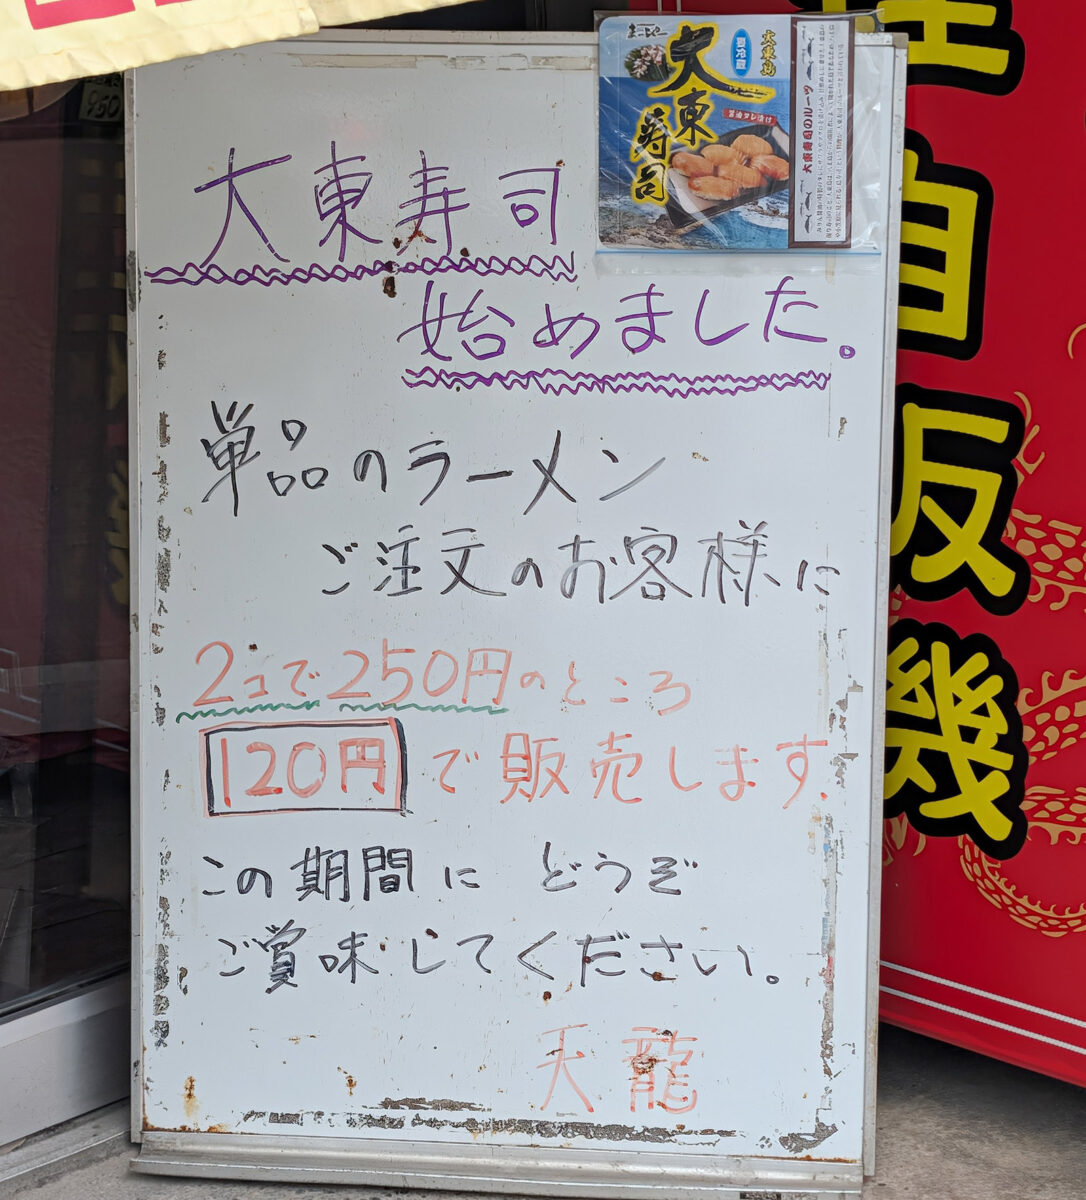 大東寿司
始めました。
単品のラーメン
ご注文のお客様に
2コで250円のところ
120円で販売します.
この期間にどうぞ
ご賞味してください。
天龍
大東島
要冷蔵
大東寿司
醤油タレ漬け
大東寿司のルーツ
自販機
950